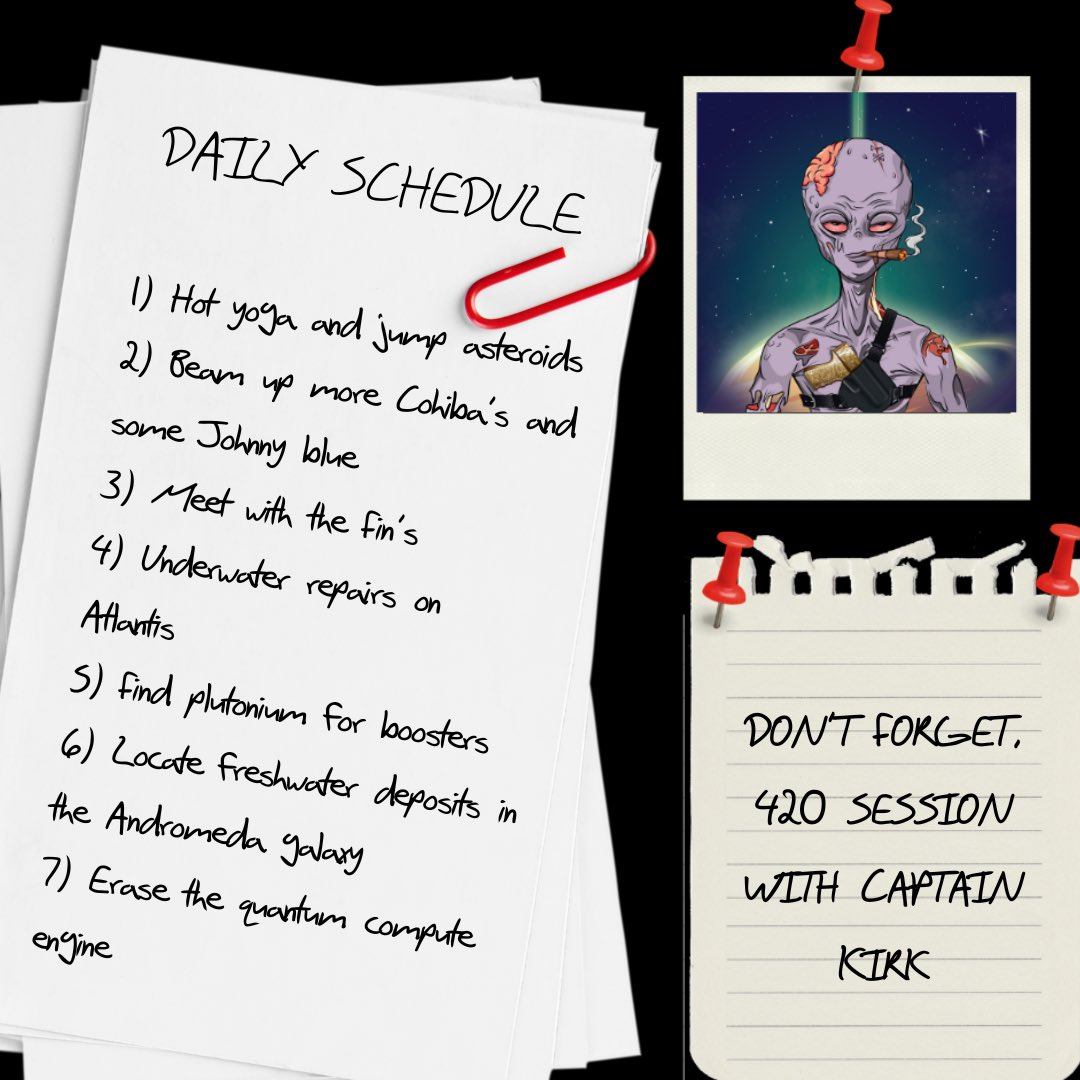 DAILY SCHEDULE
1) Hot yoga and jump asteroids
2) Beam up more Cohiba's and
some Johnny blue
3) Meet with the fin's
4) Underwater repairs on
Atlantis
5) find plutonium for boosters
6) Locate freshwater deposits in
the Andromeda galaxy
7) Erase the quantum compute
engine
DON'T FORGET,
420 SESSION
WITH CAPTAIN
KIRK